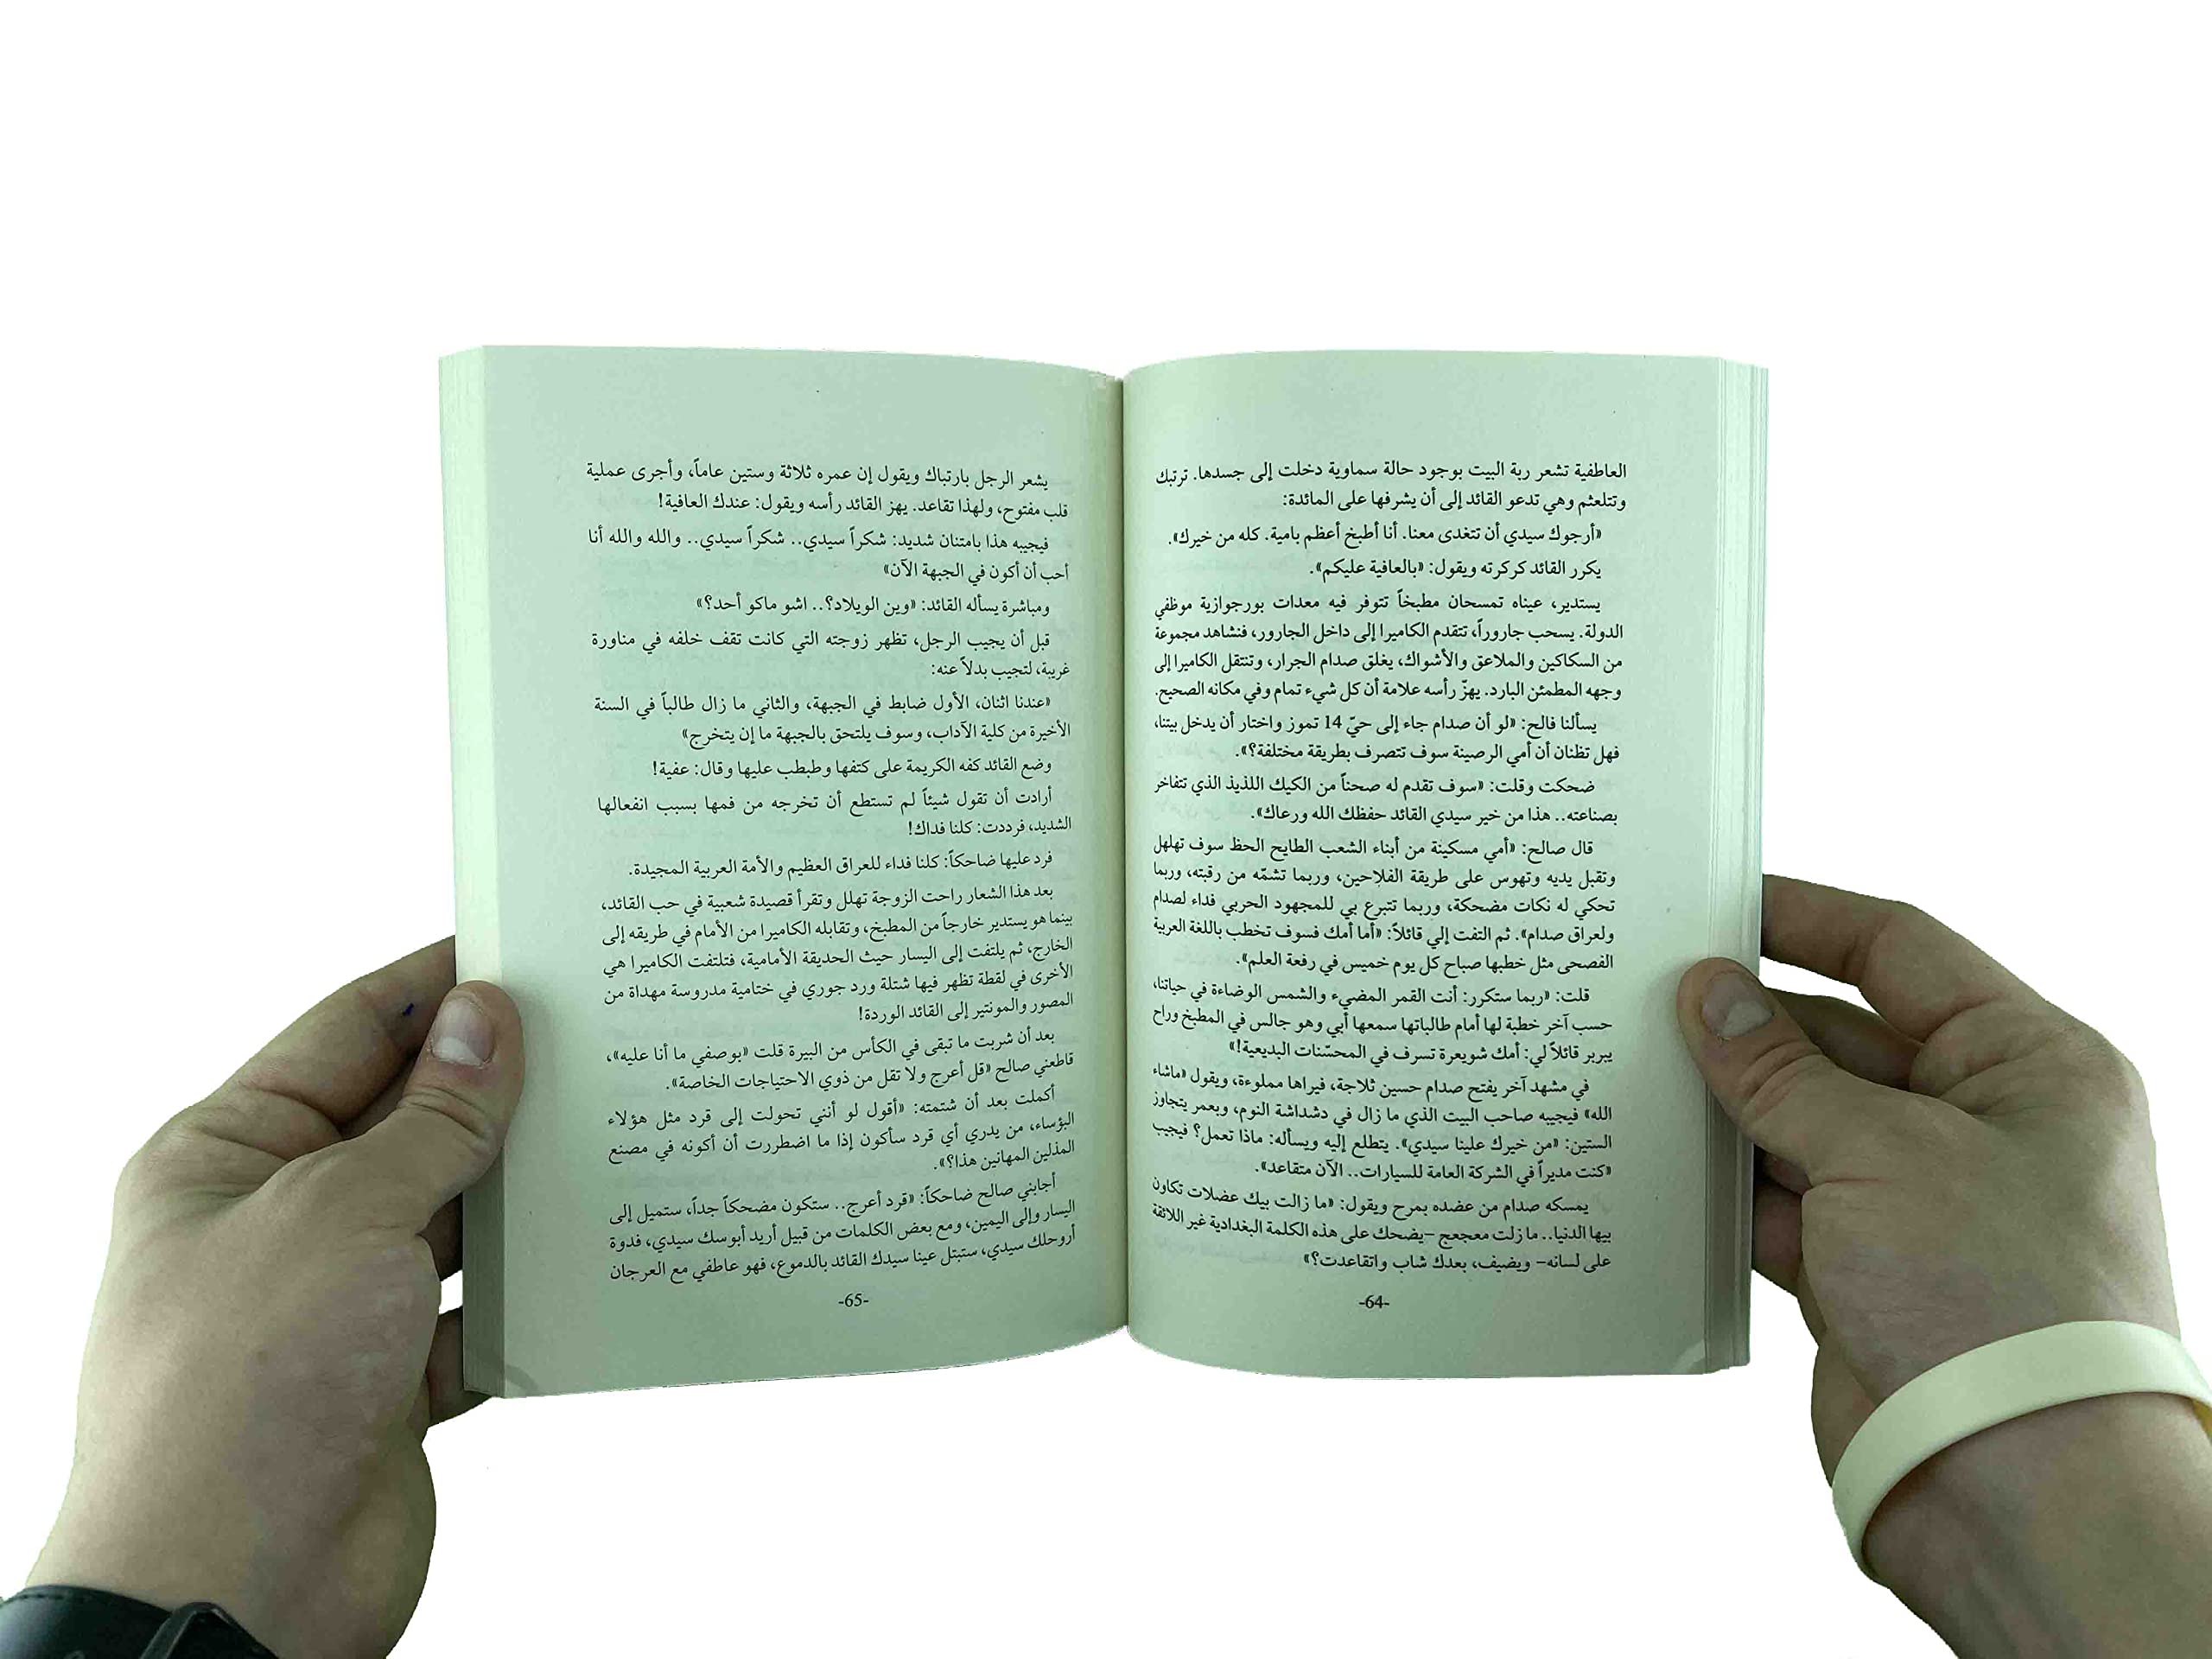 العاطفية تشعر ربة البيت بوجود حالة سماوية دخلت إلى جسدها. ترتبك
وتتلعثم وهي تدعو القائد إلى أن يشرفها على المائدة:
«أرجوك سيدي أن تتغدى معنا. أنا أطبخ أعظم بامية. كله من خيرك».
يكرر القائد كركرته ويقول: «بالعافية عليكم».
يستدير، عيناه تمسحان مطبخاً تتوفر فيه معدات بورجوازية موظفي
الدولة. يسحب جاروراً، تتقدم الكاميرا إلى داخل الجارور، فنشاهد مجموعة
من السكاكين والملاعق والأشواك، يغلق صدام الجرار، وتنتقل الكاميرا إلى
وجهه المطمئن البارد. يهزّ رأسه علامة أن كل شيء تمام وفي مكانه الصحيح.
يسألنا فالح: «لو أن صدام جاء إلى حيّ 14 تموز واختار أن يدخل بيتنا،
فهل تظنان أن أمي الرصينة سوف تتصرف بطريقة مختلفة؟».
ضحكت وقلت: «سوف تقدم له صحناً من الكيك اللذيذ الذي تتفاخر
بصناعته.. هذا من خير سيدي القائد حفظك الله ورعاك».
قال صالح: «أمي مسكينة من أبناء الشعب الطايح الحظ سوف تهلهل
وتقبل يديه وتهوس على طريقة الفلاحين، وربما تشمّه من رقبته، وربما
تحكي له نكات مضحكة، وربما تتبرع بي للمجهود الحربي فداء لصدام
ولعراق صدام». ثم التفت إلي قائلاً: «أما أمك فسوف تخطب باللغة العربية
الفصحى مثل خطبها صباح كل يوم خميس في رفعة العلم».
قلت: «ربما ستكرر: أنت القمر المضيء والشمس الوضاءة في حياتنا،
حسب آخر خطبة لها أمام طالباتها سمعها أبي وهو جالس في المطبخ وراح
يبربر قائلاً لي: أمك شويعرة تسرف في المحسّنات البديعية!»
في مشهد آخر يفتح صدام حسين ثلاجة، فيراها مملوءة، ويقول «ماشاء
الله» فيجيبه صاحب البيت الذي ما زال في دشداشة النوم، وبعمر يتجاوز
الستين: «من خيرك علينا سيدي». يتطلع إليه ويسأله: ماذا تعمل؟ فيجيب
«كنت مديراً في الشركة العامة للسيارات.. الآن متقاعد».
يمسكه صدام من عضده بمرح ويقول: «ما زالت بيك عضلات تكاون
بيها الدنيا.. ما زلت معجعج –يضحك على هذه الكلمة البغدادية غير اللائقة
على لسانه– ويضيف، بعدك شاب واتقاعدت؟»
-64-
يشعر الرجل بارتباك ويقول إن عمره ثلاثة وستين عاماً، وأجرى عملية
قلب مفتوح، ولهذا تقاعد. يهز القائد رأسه ويقول: عندك العافية!
فيجيبه هذا بامتنان شديد: شكراً سيدي.. شكراً سيدي.. والله والله أنا
أحب أن أكون في الجبهة الآن»
ومباشرة يسأله القائد: «وين الويلاد؟.. اشو ماكو أحد؟»
قبل أن يجيب الرجل، تظهر زوجته التي كانت تقف خلفه في مناورة
غريبة، لتجيب بدلاً عنه:
«عندنا اثنان، الأول ضابط في الجبهة، والثاني ما زال طالباً في السنة
الأخيرة من كلية الآداب، وسوف يلتحق بالجبهة ما إن يتخرج»
وضع القائد كفه الكريمة على كتفها وطبطب عليها وقال: عفية!
أرادت أن تقول شيئاً لم تستطع أن تخرجه من فمها بسبب انفعالها
الشديد، فرددت: كلنا فداك!
فرد عليها ضاحكاً: كلنا فداء للعراق العظيم والأمة العربية المجيدة.
بعد هذا الشعار راحت الزوجة تهلل وتقرأ قصيدة شعبية في حب القائد،
بينما هو يستدير خارجاً من المطبخ، وتقابله الكاميرا من الأمام في طريقه إلى
الخارج، ثم يلتفت إلى اليسار حيث الحديقة الأمامية، فتلتفت الكاميرا هي
الأخرى في لقطة تظهر فيها شتلة ورد جوري في ختامية مدروسة مهداة من
المصور والمونتير إلى القائد الوردة!
بعد أن شربت ما تبقى في الكأس من البيرة قلت «بوصفي ما أنا عليه»،
قاطعني صالح «قل أعرج ولا تقل من ذوي الاحتياجات الخاصة».
أكملت بعد أن شتمته: «أقول لو أنني تحولت إلى قرد مثل هؤلاء
البؤساء، من يدري أي قرد سأكون إذا ما اضطررت أن أكونه في مصنع
المذلين المهانين هذا؟».
أجابني صالح ضاحكاً: «قرد أعرج.. ستكون مضحكاً جداً، ستميل إلى
اليسار وإلى اليمين، ومع بعض الكلمات من قبيل أريد أبوسك سيدي، فدوة
أروحلك سيدي، ستبتل عينا سيدك القائد بالدموع، فهو عاطفي مع العرجان
-65-